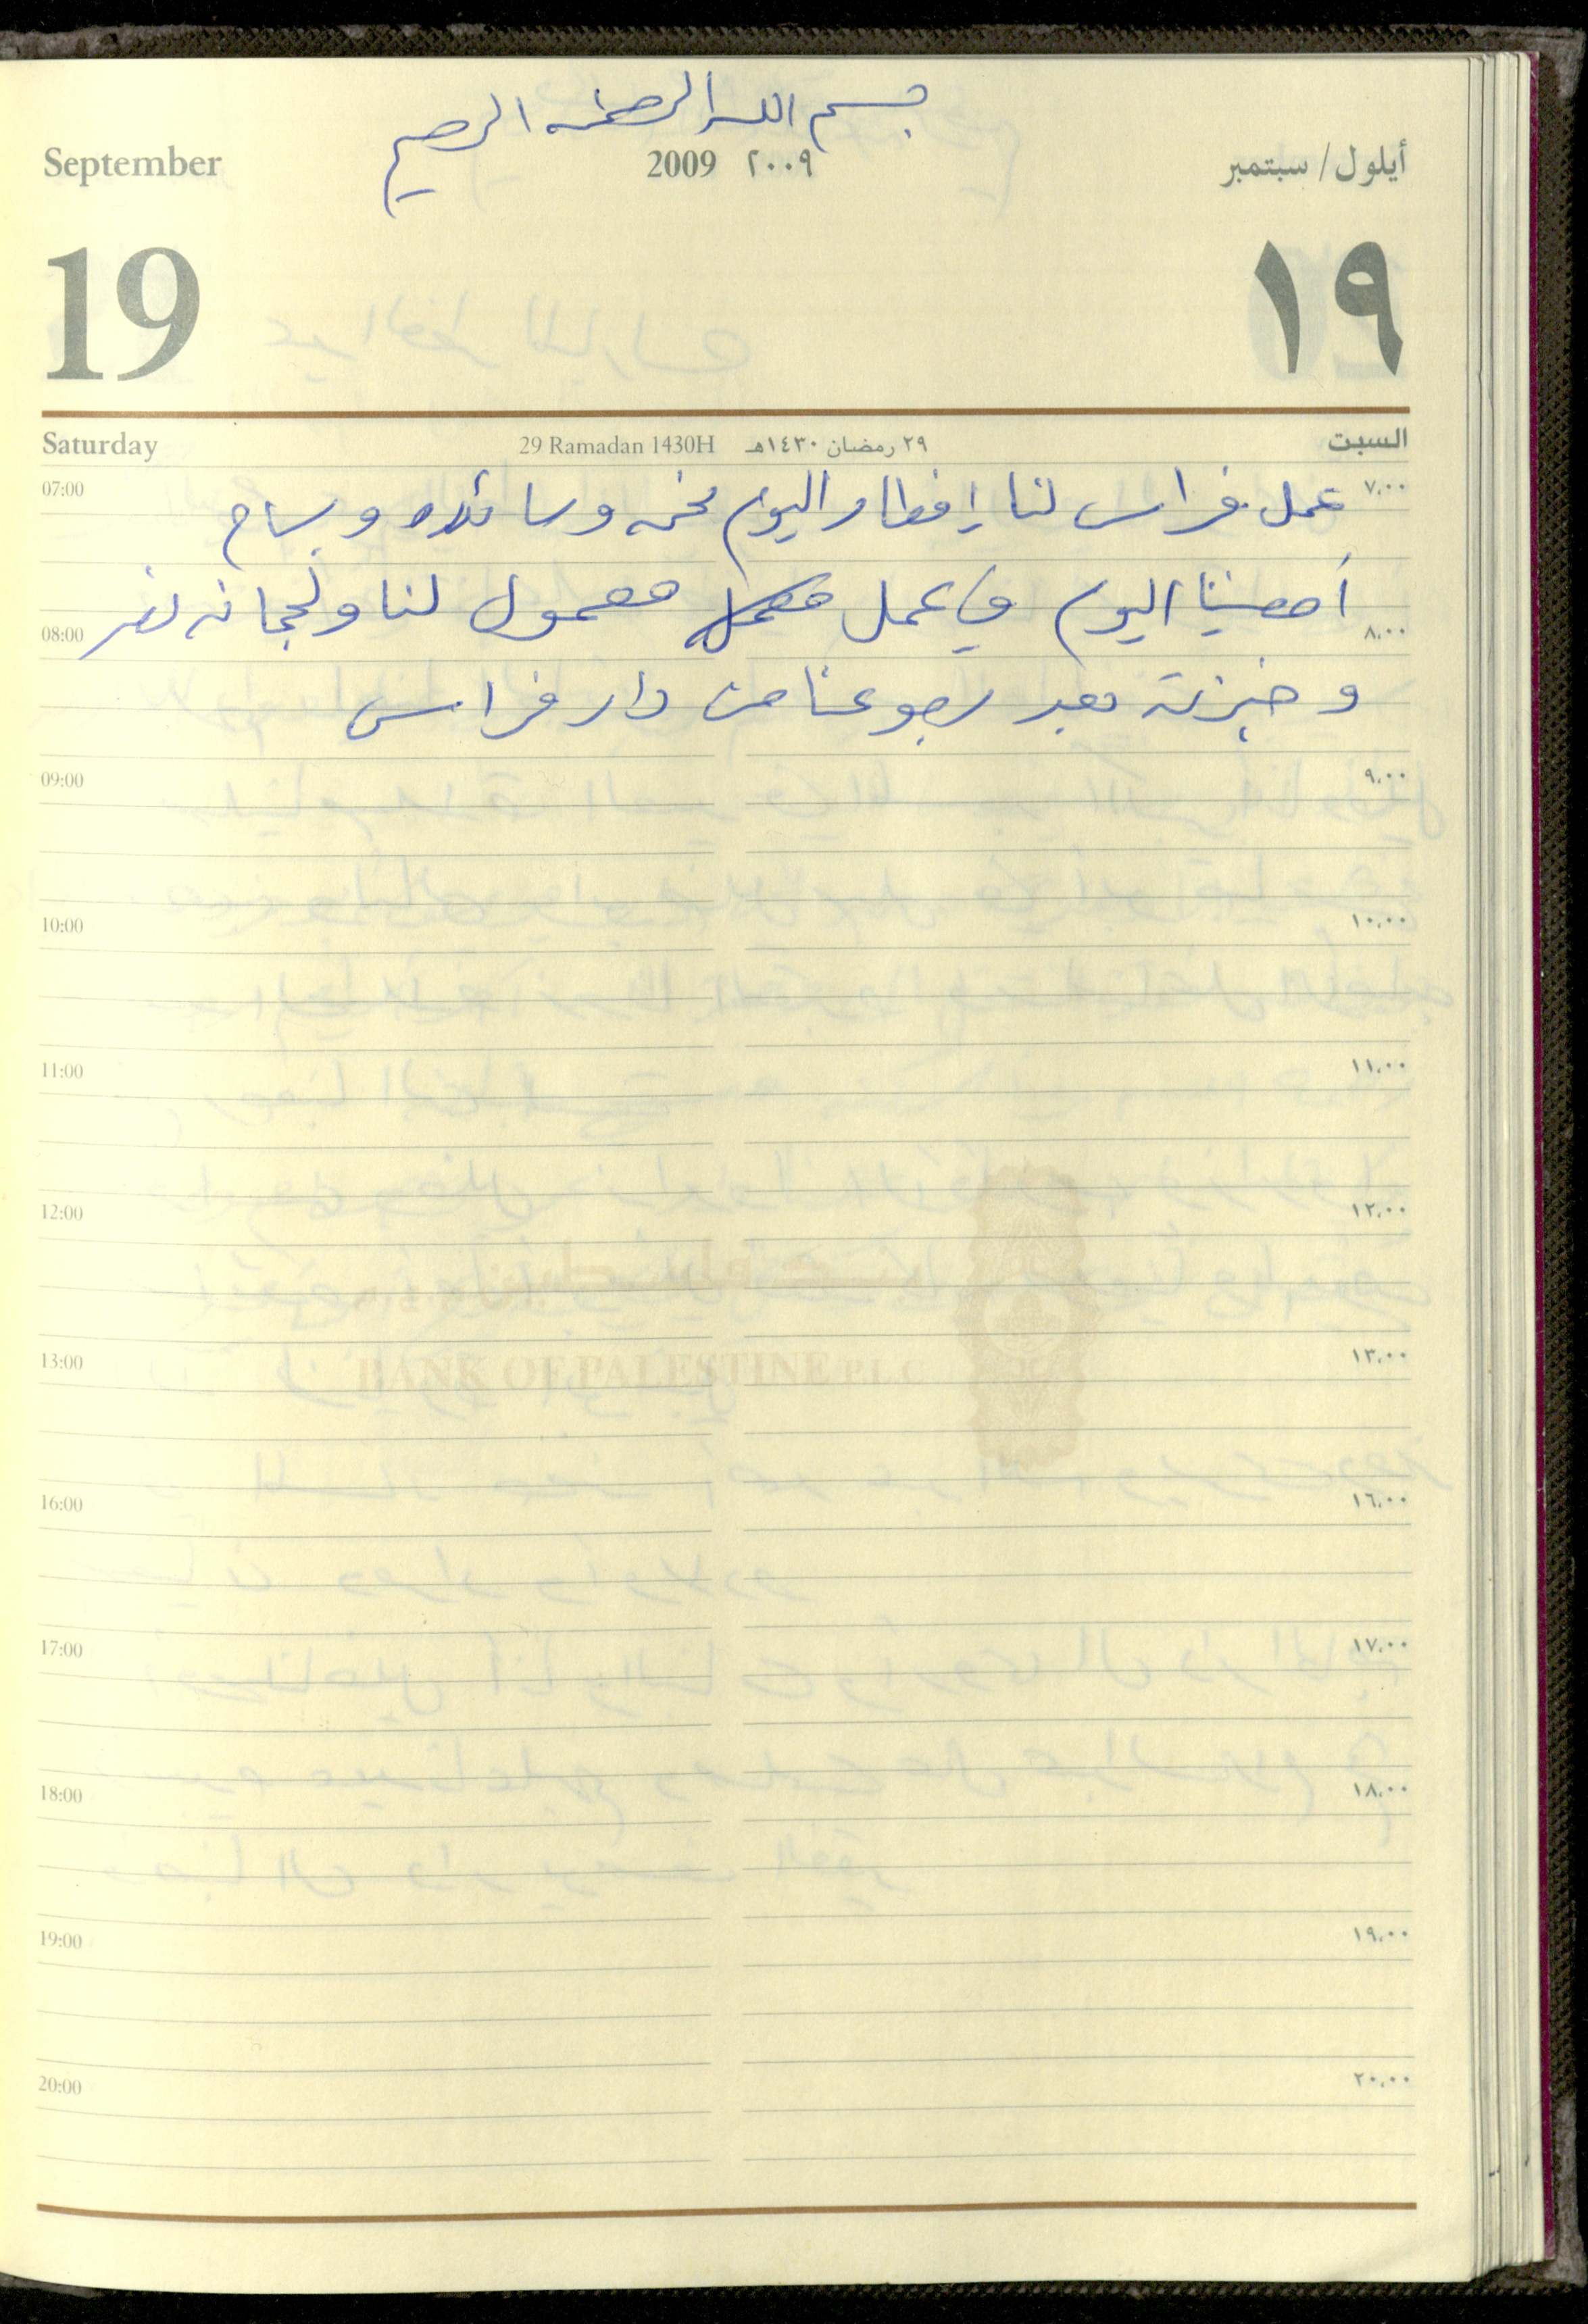 بسم الله الرحمن الرحيم
September 2009 ٢٠٠٩ أيلول / سبتمبر
19 ١٩
Saturday 29 Ramadan 1430H ٢٩ رمضان ١٤٣٠هـ السبت
07:00 ٧,٠٠
عمل فراس لنا إفطار اليوم نحن وسائده وسماح
أمضينا اليوم في عمل معمول لنا ولجمانه
08:00 ٨,٠٠
وخبزته بعد رجوعنا من دار فراس
09:00 ٩,٠٠
10:00 ١٠,٠٠
11:00 ١١,٠٠
12:00 ١٢,٠٠
BANK OF PALESTINE P.L.C
13:00 ١٣,٠٠
16:00 ١٦,٠٠
17:00 ١٧,٠٠
18:00 ١٨,٠٠
19:00 ١٩,٠٠
20:00 ٢٠,٠٠